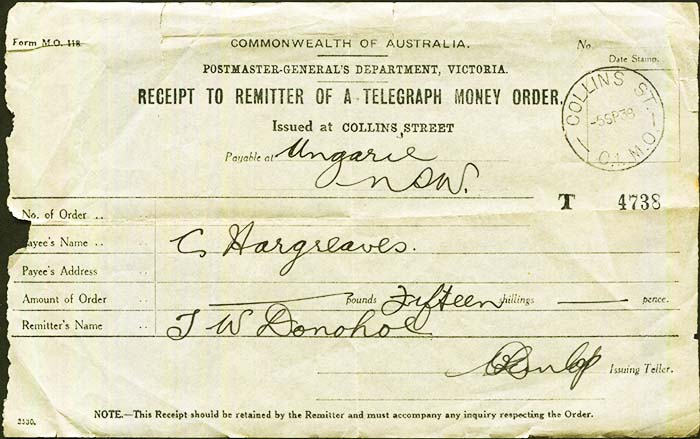 Form M.O. 118
COMMONWEALTH OF AUSTRALIA.
No.
Date Stamp.
POSTMASTER-GENERAL'S DEPARTMENT, VICTORIA.
RECEIPT TO REMITTER OF A TELEGRAPH MONEY ORDER.
Issued at COLLINS STREET
COLLINS ST.
-5SP38
O.I.M.O.
Payable at Ungarie
NSW.
T 4738
No. of Order ..
ayee's Name .. C Hargreaves.
Payee's Address ..
Amount of Order .. pounds Fifteen shillings pence.
Remitter's Name .. J W Donohoe
Issuing Teller.
NOTE.—This Receipt should be retained by the Remitter and must accompany any inquiry respecting the Order.